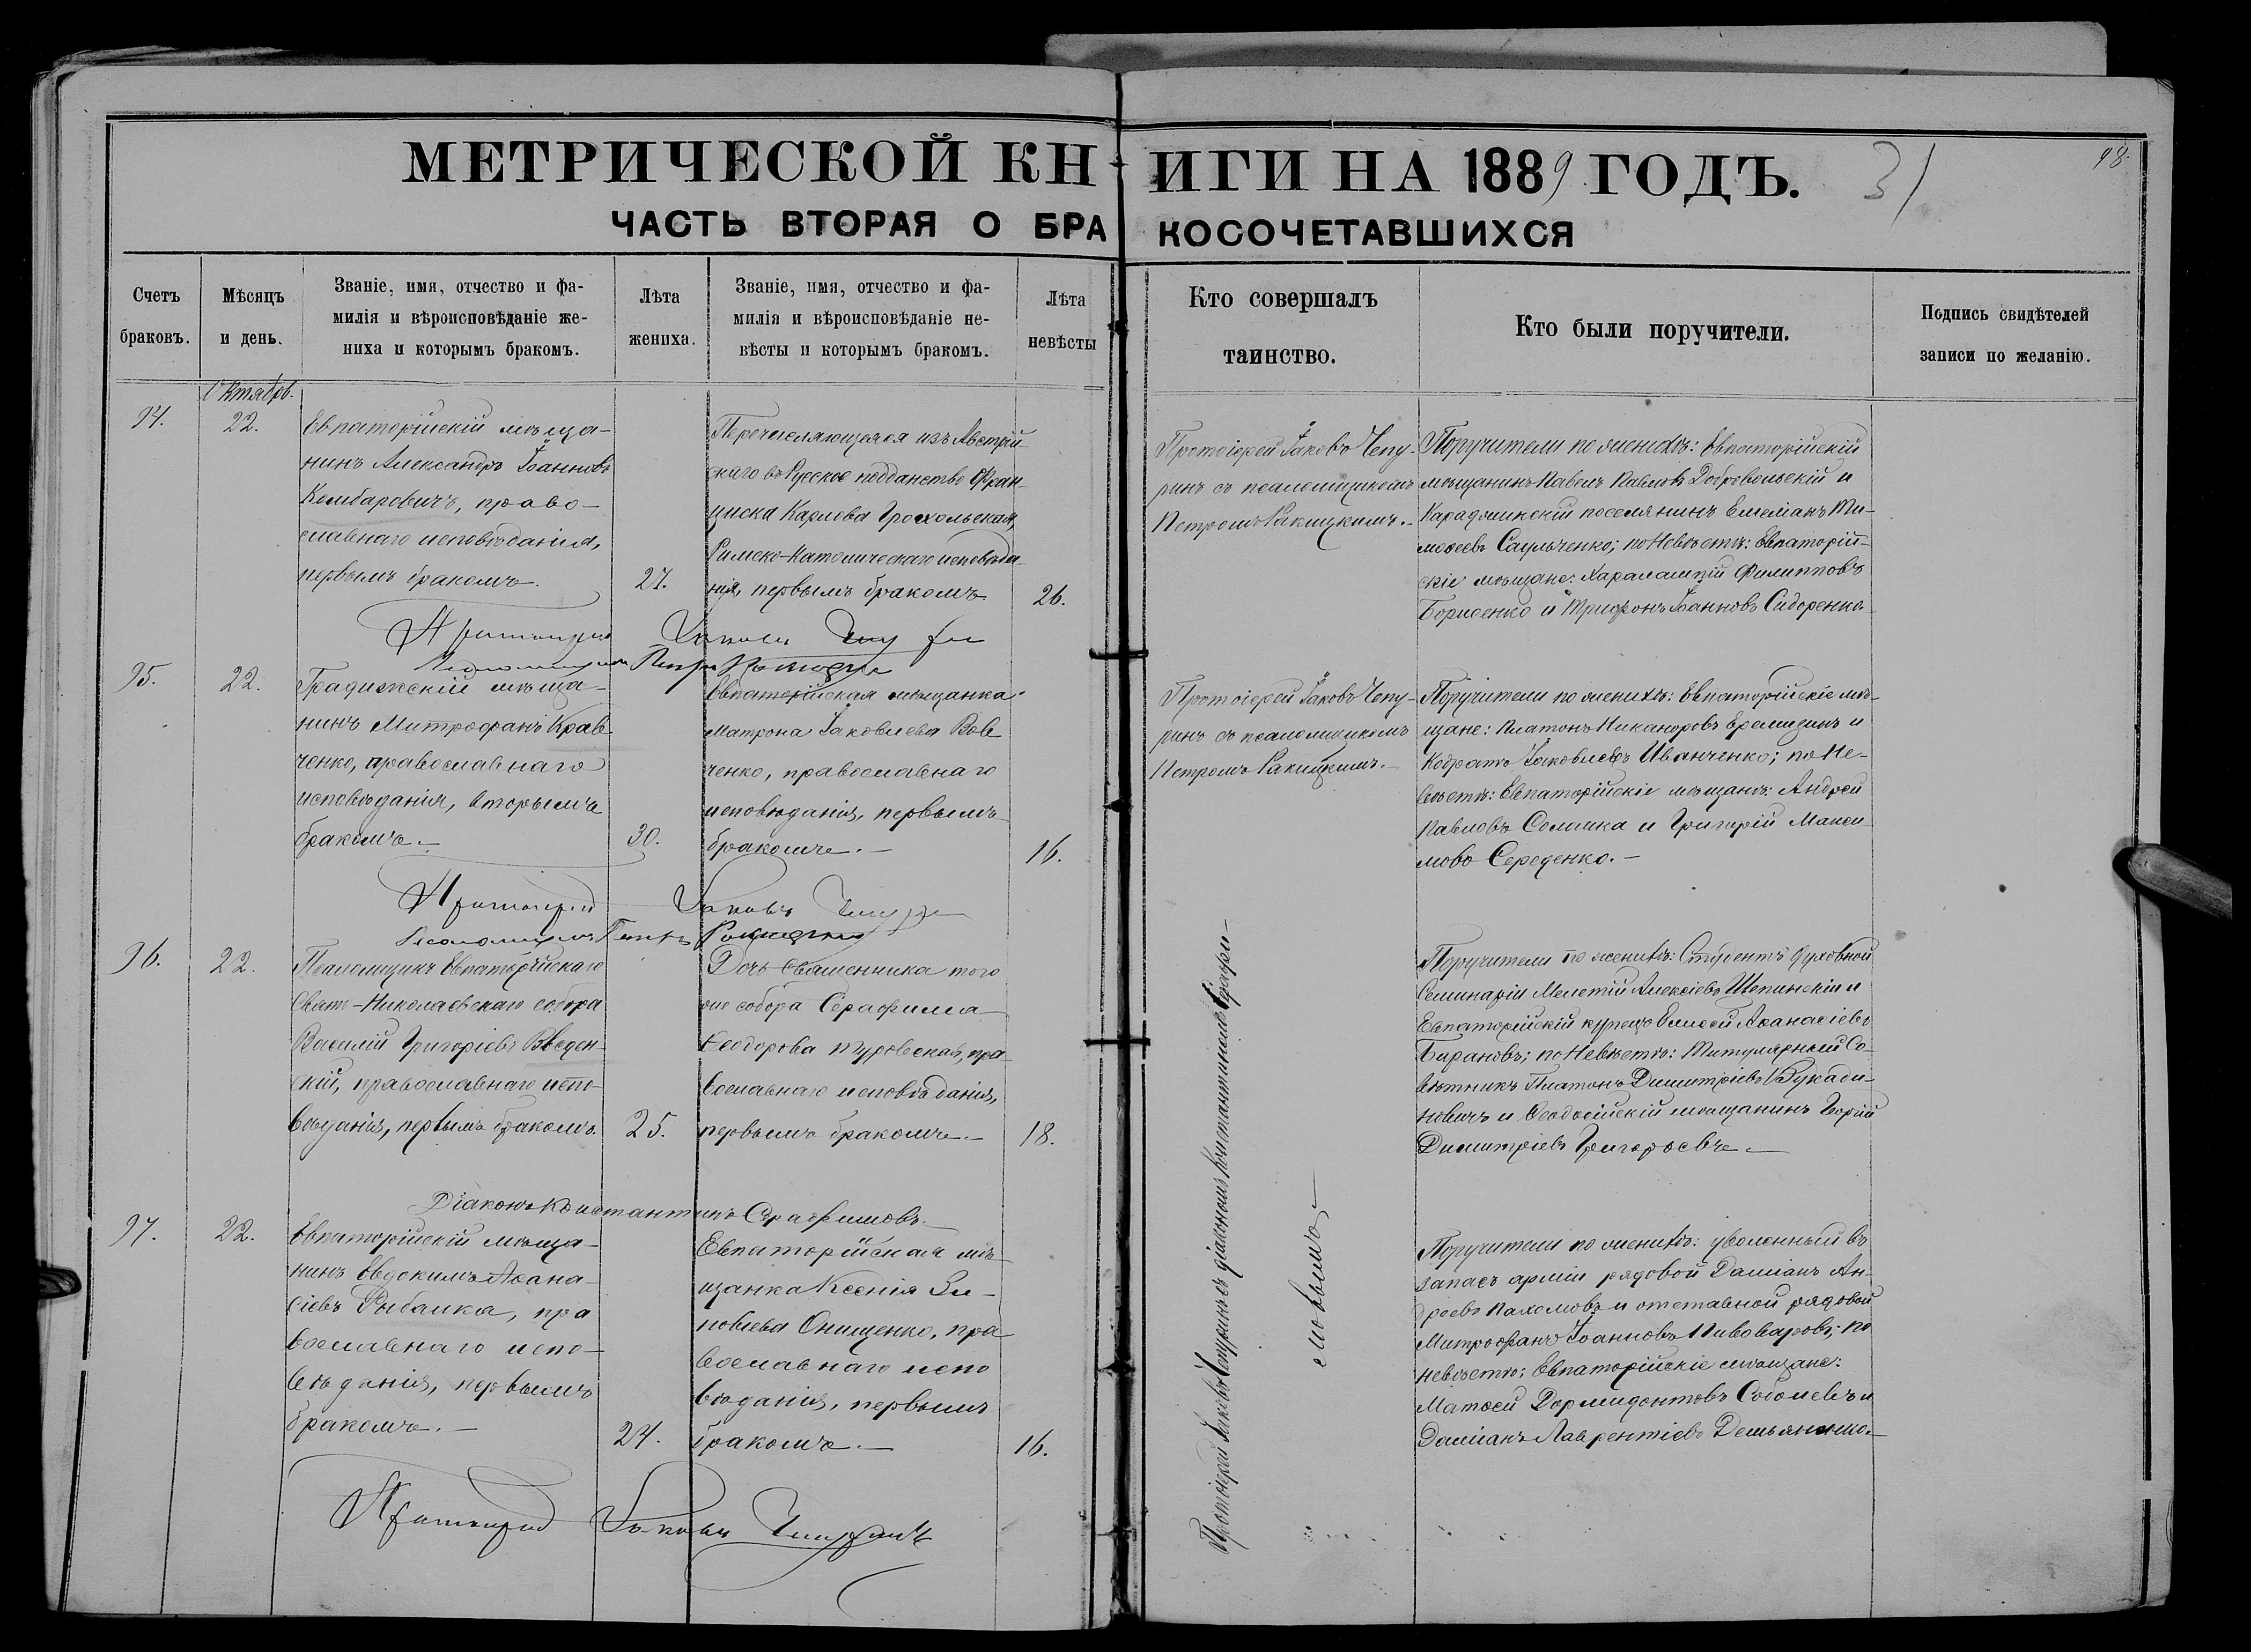 МЕТРИЧЕСКОЙ КНИГИ НА 1889 ГОДЪ.
31
98.
ЧАСТЬ ВТОРАЯ О БРАКОСОЧЕТАВШИХСЯ
Счетъ браковъ.
Мѣсяцъ и день.
Званіе, имя, отчество и фа-
милія и вѣроисповѣданіе же-
ниха и которымъ бракомъ.
Лѣта жениха.
Званіе, имя, отчество и фа-
милія и вѣроисповѣданіе не-
вѣсты и которымъ бракомъ.
Лѣта невѣсты
Кто совершалъ
таинство.
Кто были поручители.
Подпись свидѣтелей
записи по желанію.
Октябрь.
94.
22.
Евпаторійскій мѣща-
нинъ Александръ Іоанновъ
Комбаровичъ, право-
славнаго исповѣданія,
первымъ бракомъ.
27.
Перечисляющаяся изъ Австрій-
скаго въ Русское подданство Фран-
циска Карлова Грохольская,
Римско-Католическаго исповѣда-
нія, первымъ бракомъ
26.
Протоіерей Іаковъ Чепу-
ринъ съ псаломщикомъ
Петромъ Ракицкимъ.-
Поручители по женихѣ: Евпаторійскій
мѣщанинъ Павелъ Павловъ Добровольскій и
поселянинъ Емеліанъ Ти-
моѳеевъ Саульченко; по Невѣстѣ: Евпаторій-
скіе мѣщане: Харалампій Филипповъ
Борисенко и Трифонъ Іоанновъ Сидоренко
Протоіерей Іаковъ
Псаломщикъ Петръ Ракицкій
95.
22.
Градижскій мѣща-
нинъ Митрофанъ Крав-
ченко, православнаго
исповѣданія, вторымъ
бракомъ.-
30.
Евпаторійская мѣщанка
Матрона Іаковлева Вов-
ченко, православнаго
исповѣданія, первымъ
бракомъ.-
16.
Протоіерей Іаковъ Чепу-
ринъ съ псаломщикомъ
Петромъ Ракицкимъ.-
Поручители по женихѣ: Евпаторійскіе мѣ-
щане: Платонъ Никаноровъ и
Кодратъ Іаковлевъ Иванченко; по Не-
вѣстѣ: Евпаторійскіе мѣщане: Андрей
Павловъ Соломка и Григорій Макси-
мовъ Середенко.-
Протоіерей Іаковъ
Псаломщикъ Петръ Ракицкій
96.
22.
Псаломщикъ Евпаторійскаго
Свято-Николаевскаго собора
Василій Григоріевъ Введен-
скій, православнаго испо-
вѣданія, первымъ бракомъ.
25.
Дочь Священника того
же собора Серафима
Ѳеодорова Туровская, пра-
вославнаго исповѣданія,
первымъ бракомъ.-
18.
Поручители по женихѣ: Студентъ духовной
Семинаріи Мелетій Алексіевъ Шепинскій и
Евпаторійскій купецъ Елисей Аѳанасіевъ
Барановъ; по Невѣстѣ: Титулярный Со-
вѣтникъ Платонъ Димитріевъ Вукади-
новичъ и Ѳеодосійскій мѣщанинъ Георгій
Димитріевъ Григорьевъ.-
Діаконъ Константинъ Серафимовъ.
97.
22.
Евпаторійскій мѣща-
нинъ Евдокимъ Аѳана-
сіевъ Рыбалка, пра-
вославнаго испо-
вѣданія, первымъ
бракомъ.-
24.
Евпаторійская мѣ-
щанка Ксенія Зи-
новіева Онищенко, пра-
вославнаго испо-
вѣданія, первымъ
бракомъ.-
16.
Протоіерей Іаковъ Чепуринъ съ діакономъ Константиномъ Серафи-
мовымъ.-
Поручители по женихѣ: уволенный въ
запасъ арміи рядовой Даміанъ Ан-
дреевъ Пахомовъ и отставной рядовой
Митрофанъ Іоанновъ Пивоваровъ; по
невѣстѣ: Евпаторійскіе мѣщане:
Матѳей Дормидонтовъ Соболевъ и
Даміанъ Лаврентіевъ Демьяненко.-
Протоіерей Іаковъ Чепуринъ